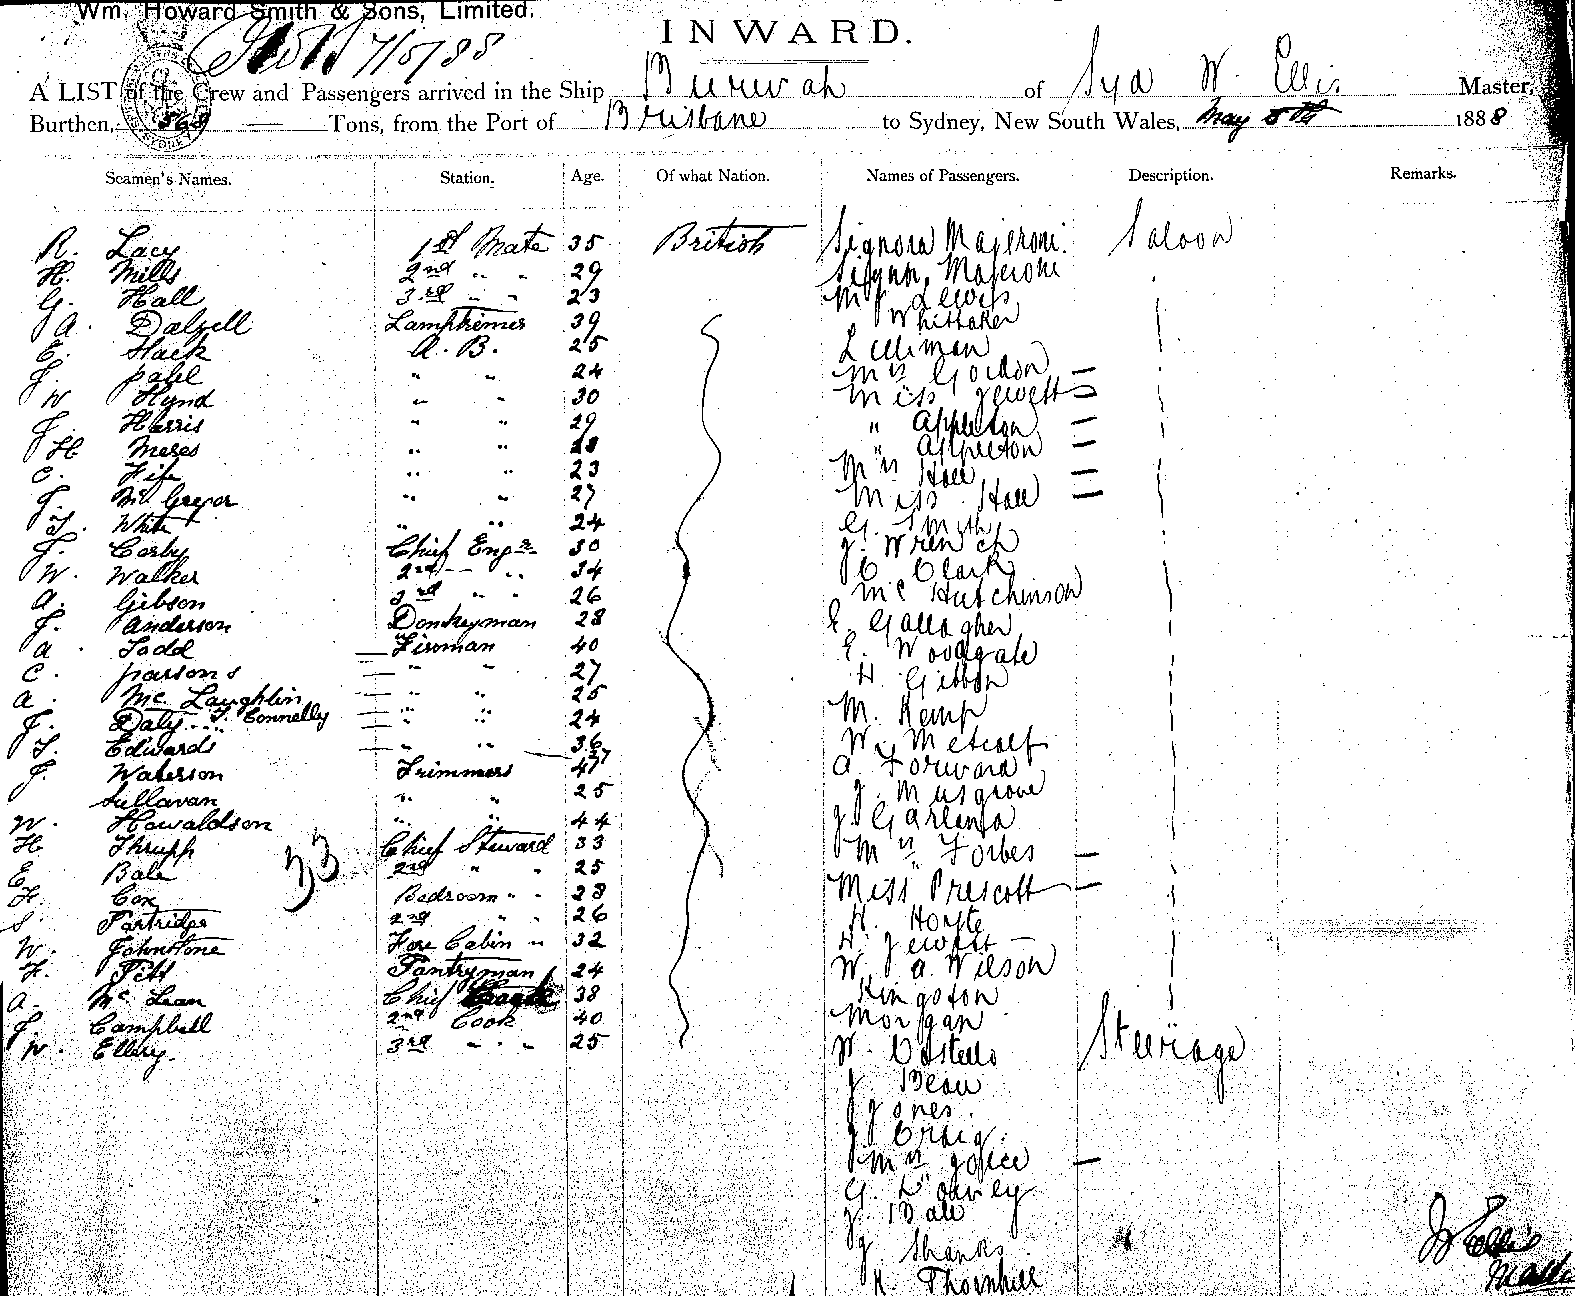 Wm. Howard Smith & Sons, Limited.
7/5/88
INWARD.
A LIST of the Crew and Passengers arrived in the Ship Burwah of Syd W. Ellis Master,
Burthen, 569 Tons, from the Port of Brisbane to Sydney, New South Wales, May 5th 1888
Seamen's Names. Station. Age. Of what Nation. Names of Passengers. Description. Remarks.
R. Lacy 1st Mate 35 British Signora Majeroni Saloon
H. Mills 2nd " " 29 Majeroni
G. Hall 3rd " " 23 Mr Lewis
A. Dalzell Lamptrimer 39 Whittaker
E. Hack A. B. 25
J. Pabel " " 24 Mrs Gordon —
W Hynd " " 30 Miss Jewett —
J. Harris " " 29 " Appleton —
H Meres " " 28 " Appleton —
C. Fife " " 23 Mrs Hall —
J. McGregor " " 27 Miss Hall —
T. White " " 24 G. Smith
J. Corby Chief Engr 30 J. Wrench
W. Walker 2nd " 34 C Clark
A. Gibson 3rd " " 26 Mc Hutchinson
J. Anderson Donkeyman 28 E. Gallagher
A. Todd Fireman 40 E. Woodgate
C. Parsons " " 27 H. Gibbon
A. McLaughlin " " 25 M. Kemp
J. Daly T. Connelly " " 24 W. Metcalf
T. Edwards " " 36 A Forward
J. Waterson Trimmers 47 J. Musgrove
Sullavan " " 25 J Garland
W. Howaldson " " 44 Mrs Forbes —
H Thrupp Chief Steward 33 Miss Prescott —
E Bale 2nd " " 25 H. Hoyte
33
F. Cox Bedroom " " 28 H. Jewett —
S. Partridge 2nd " " 26 W. A. Wilson
W. Johnstone Fore Cabin " 32 Kingston
F. Pitt Pantryman 24 Morgan
A. McLean Chief 38 W. Costello Steerage
J. Campbell 2nd Cook 40 J Beau
W. Ellery. 3rd " " 25 J Jones.
J. Craig.
Mrs Joice —
G. Davey
J. Bale
J Shanks
K. Thornhill
W Ellis
Master